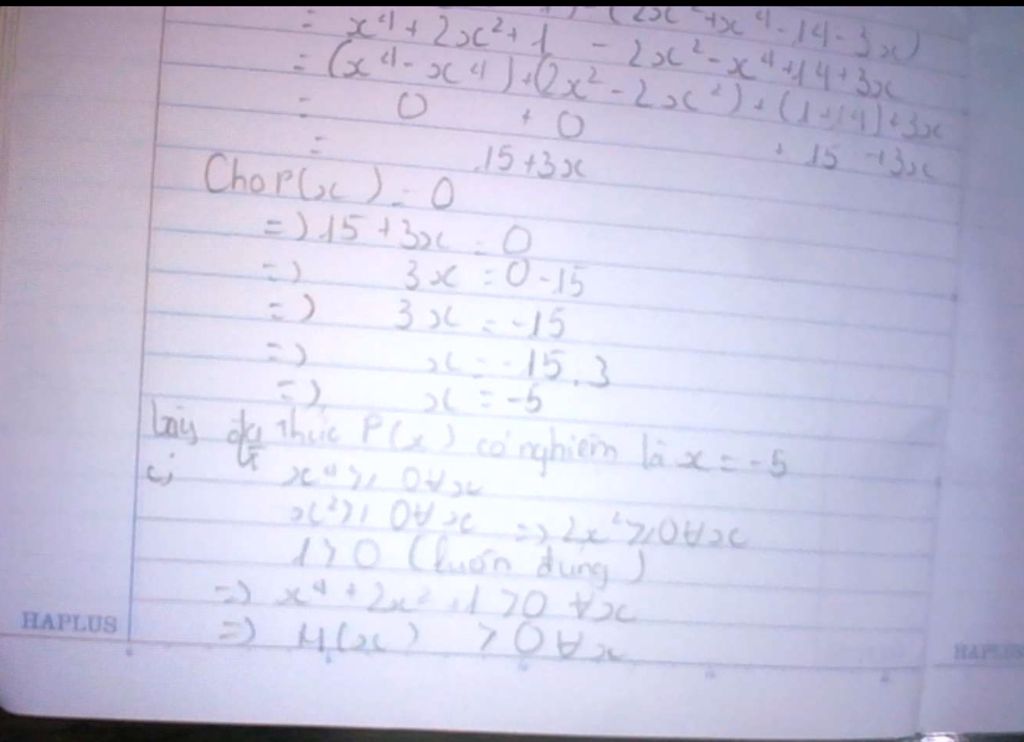 - (2x² + x⁴ - 14 - 3x)
= x⁴ + 2x² + 1 - 2x² - x⁴ + 14 + 3x
= (x⁴ - x⁴) + (2x² - 2x²) + (1 + 14) + 3x
= 0 + 0 + 15 + 3x
= 15 + 3x
Cho P(x) = 0
=) 15 + 3x = 0
=) 3x = 0 - 15
=) 3x = -15
=) x = -15 . 3
=) x = -5
đa thức P(x) có nghiệm là x = -5
c) x⁴ ≥ 0 ∀x
x² ≥ 0 ∀x => 2x² ≥ 0 ∀x
1 > 0 (luôn đúng)
=) x⁴ + 2x² + 1 > 0 ∀x
=) M(x) > 0 ∀x
HAPLUS
HAPLUS